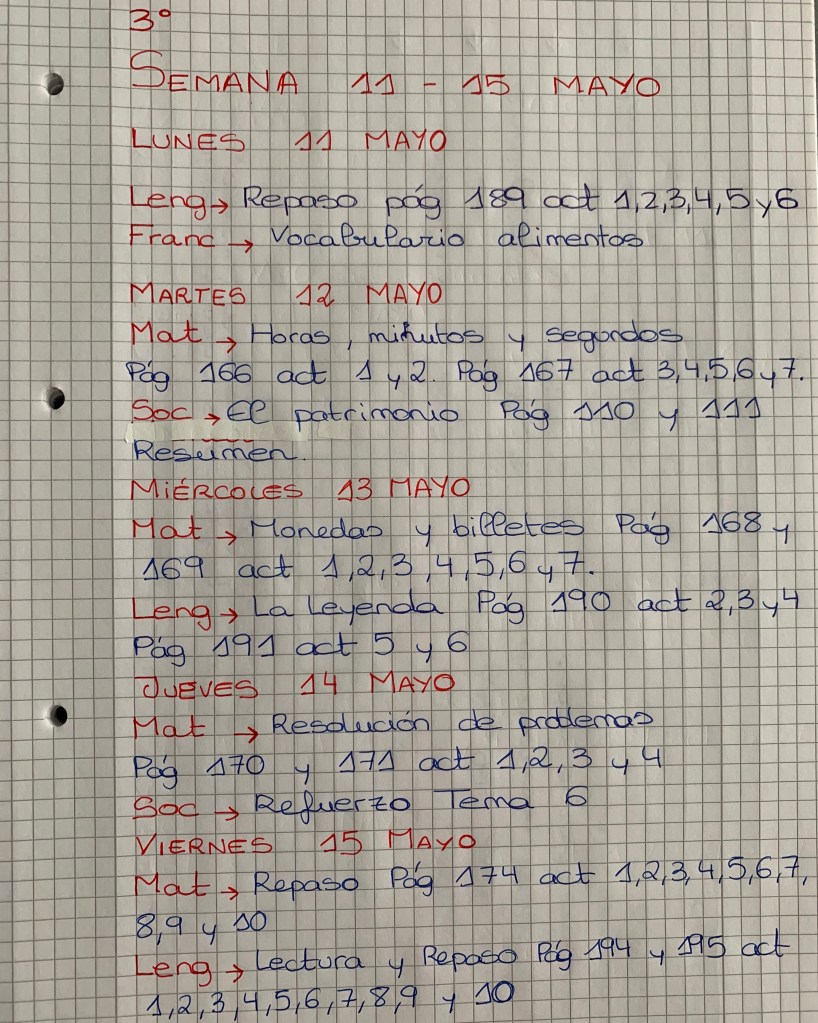 3º
SEMANA 11 - 15 MAYO
LUNES 11 MAYO
Leng → Repaso pág 189 act 1,2,3,4,5 y 6
Franc → Vocabulario alimentos
MARTES 12 MAYO
Mat → Horas, minutos y segundos
Pág 166 act 1 y 2. Pág 167 act 3,4,5,6 y 7.
Soc → El patrimonio Pág 110 y 111
Resumen.
MIÉRCOLES 13 MAYO
Mat → Monedas y billetes Pág 168 y
169 act 1,2,3,4,5,6 y 7.
Leng → La Leyenda Pág 190 act 2,3 y 4
Pág 191 act 5 y 6
JUEVES 14 MAYO
Mat → Resolución de problemas
Pág 170 y 171 act 1,2,3 y 4
Soc → Refuerzo Tema 6
VIERNES 15 MAYO
Mat → Repaso Pág 174 act 1,2,3,4,5,6,7,
8,9 y 10
Leng → Lectura y Repaso Pág 194 y 195 act
1,2,3,4,5,6,7,8,9 y 10